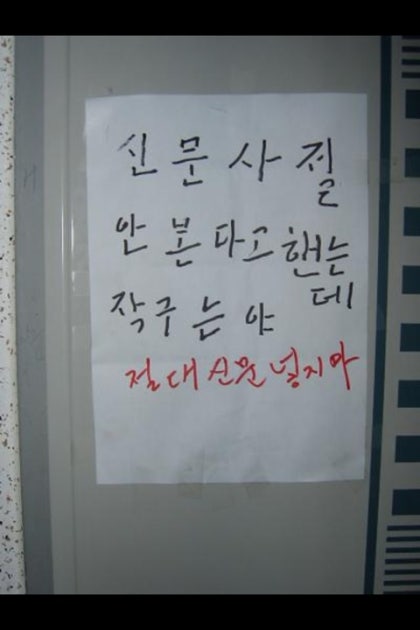 신문사절
안 본 다고 핸는데
작구 는 야
절대 신문 넣지마